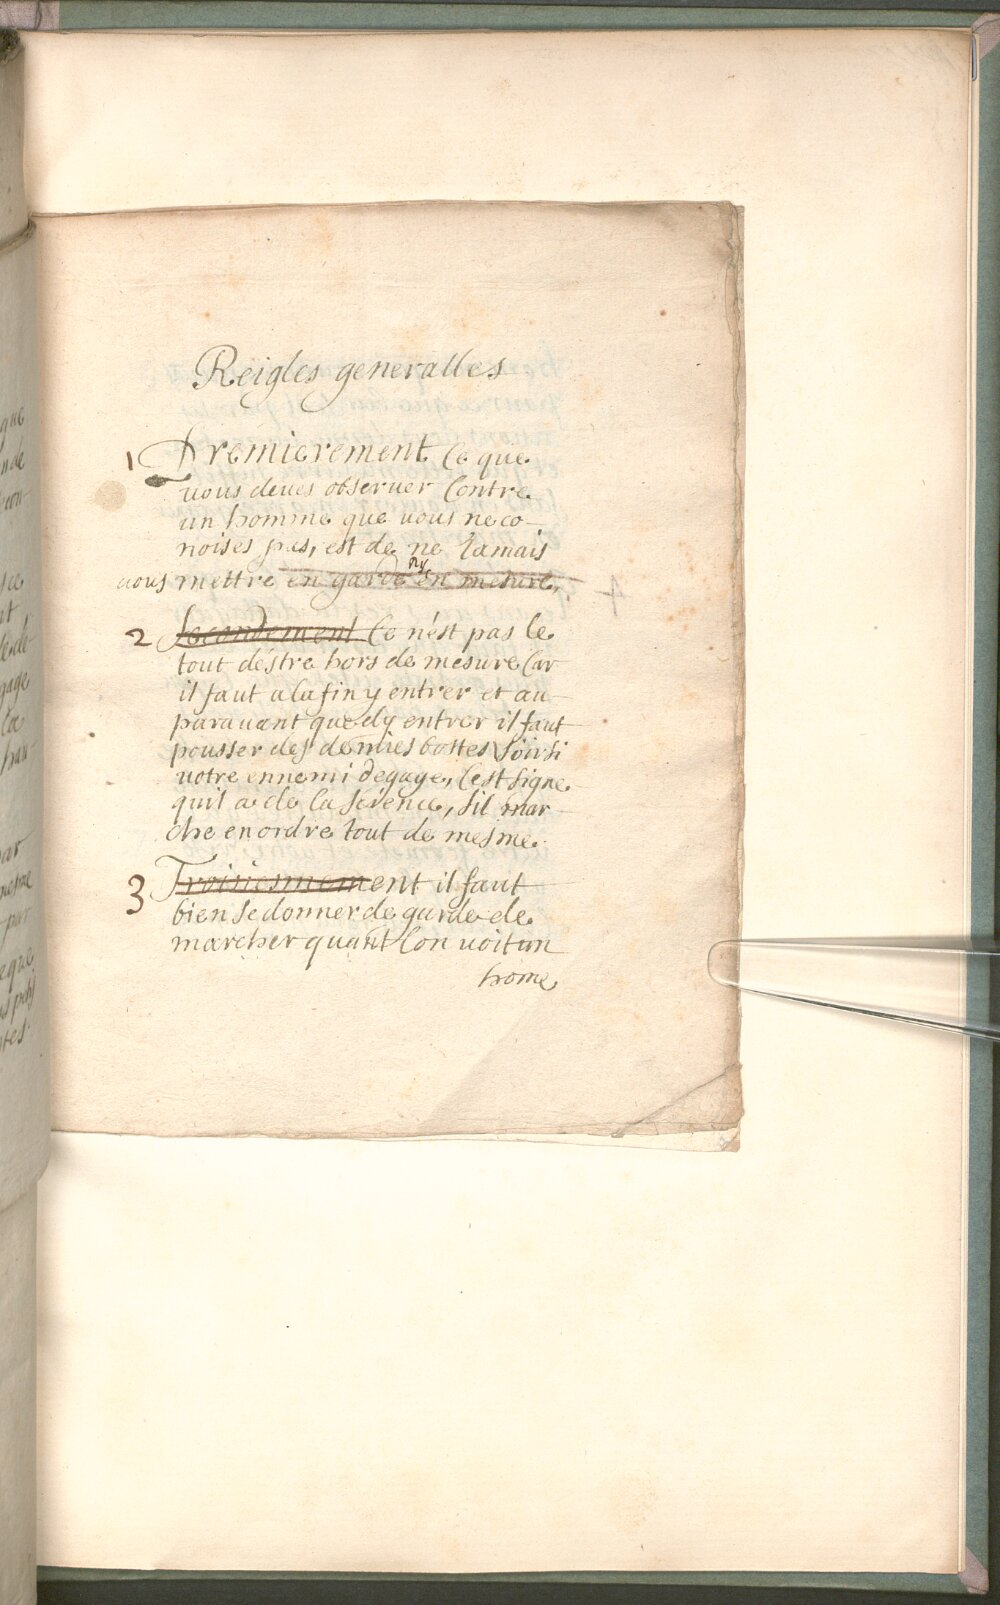 Reigles generalles
1 Premierement Ce que
vous deves observer Contre
un homme que vous ne co-
noises pas, est de ne Iamais
vous mettre en garde ny en mesure,
2 Secondement Ce n'est pas le
tout d'estre hors de mesure Car
il faut a la fin y entrer et au
paravant que d'y entrer il faut
pousser des demies bottes si
votre ennemi degage, C'est signe
quil a de la , sil mar
che en ordre tout de mesme.
3 Troisiesmement il faut
bien se donner de garde de
marcher quant lon voit un
home